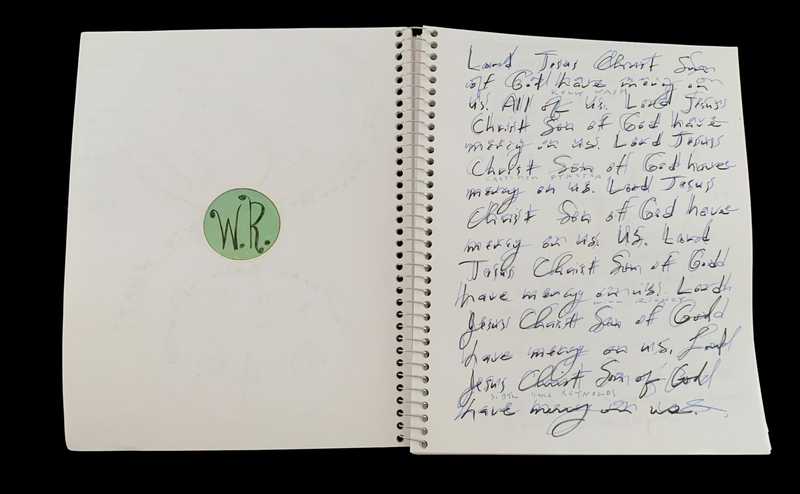 W.R.
Lord Jesus Christ Son
of God have mercy on
us. All of us. Lord Jesus
Christ Son of God have
mercy on us. Lord Jesus
Christ Son of God have
mercy on us. Lord Jesus
Christ Son of God have
mercy on us. US. Lord
Jesus Christ Son of God
have mercy on us. Lord
Jesus Christ Son of God
have mercy on us. Lord
Jesus Christ Son of God
SIBYL DANA REYNOLDS
have mercy on us.